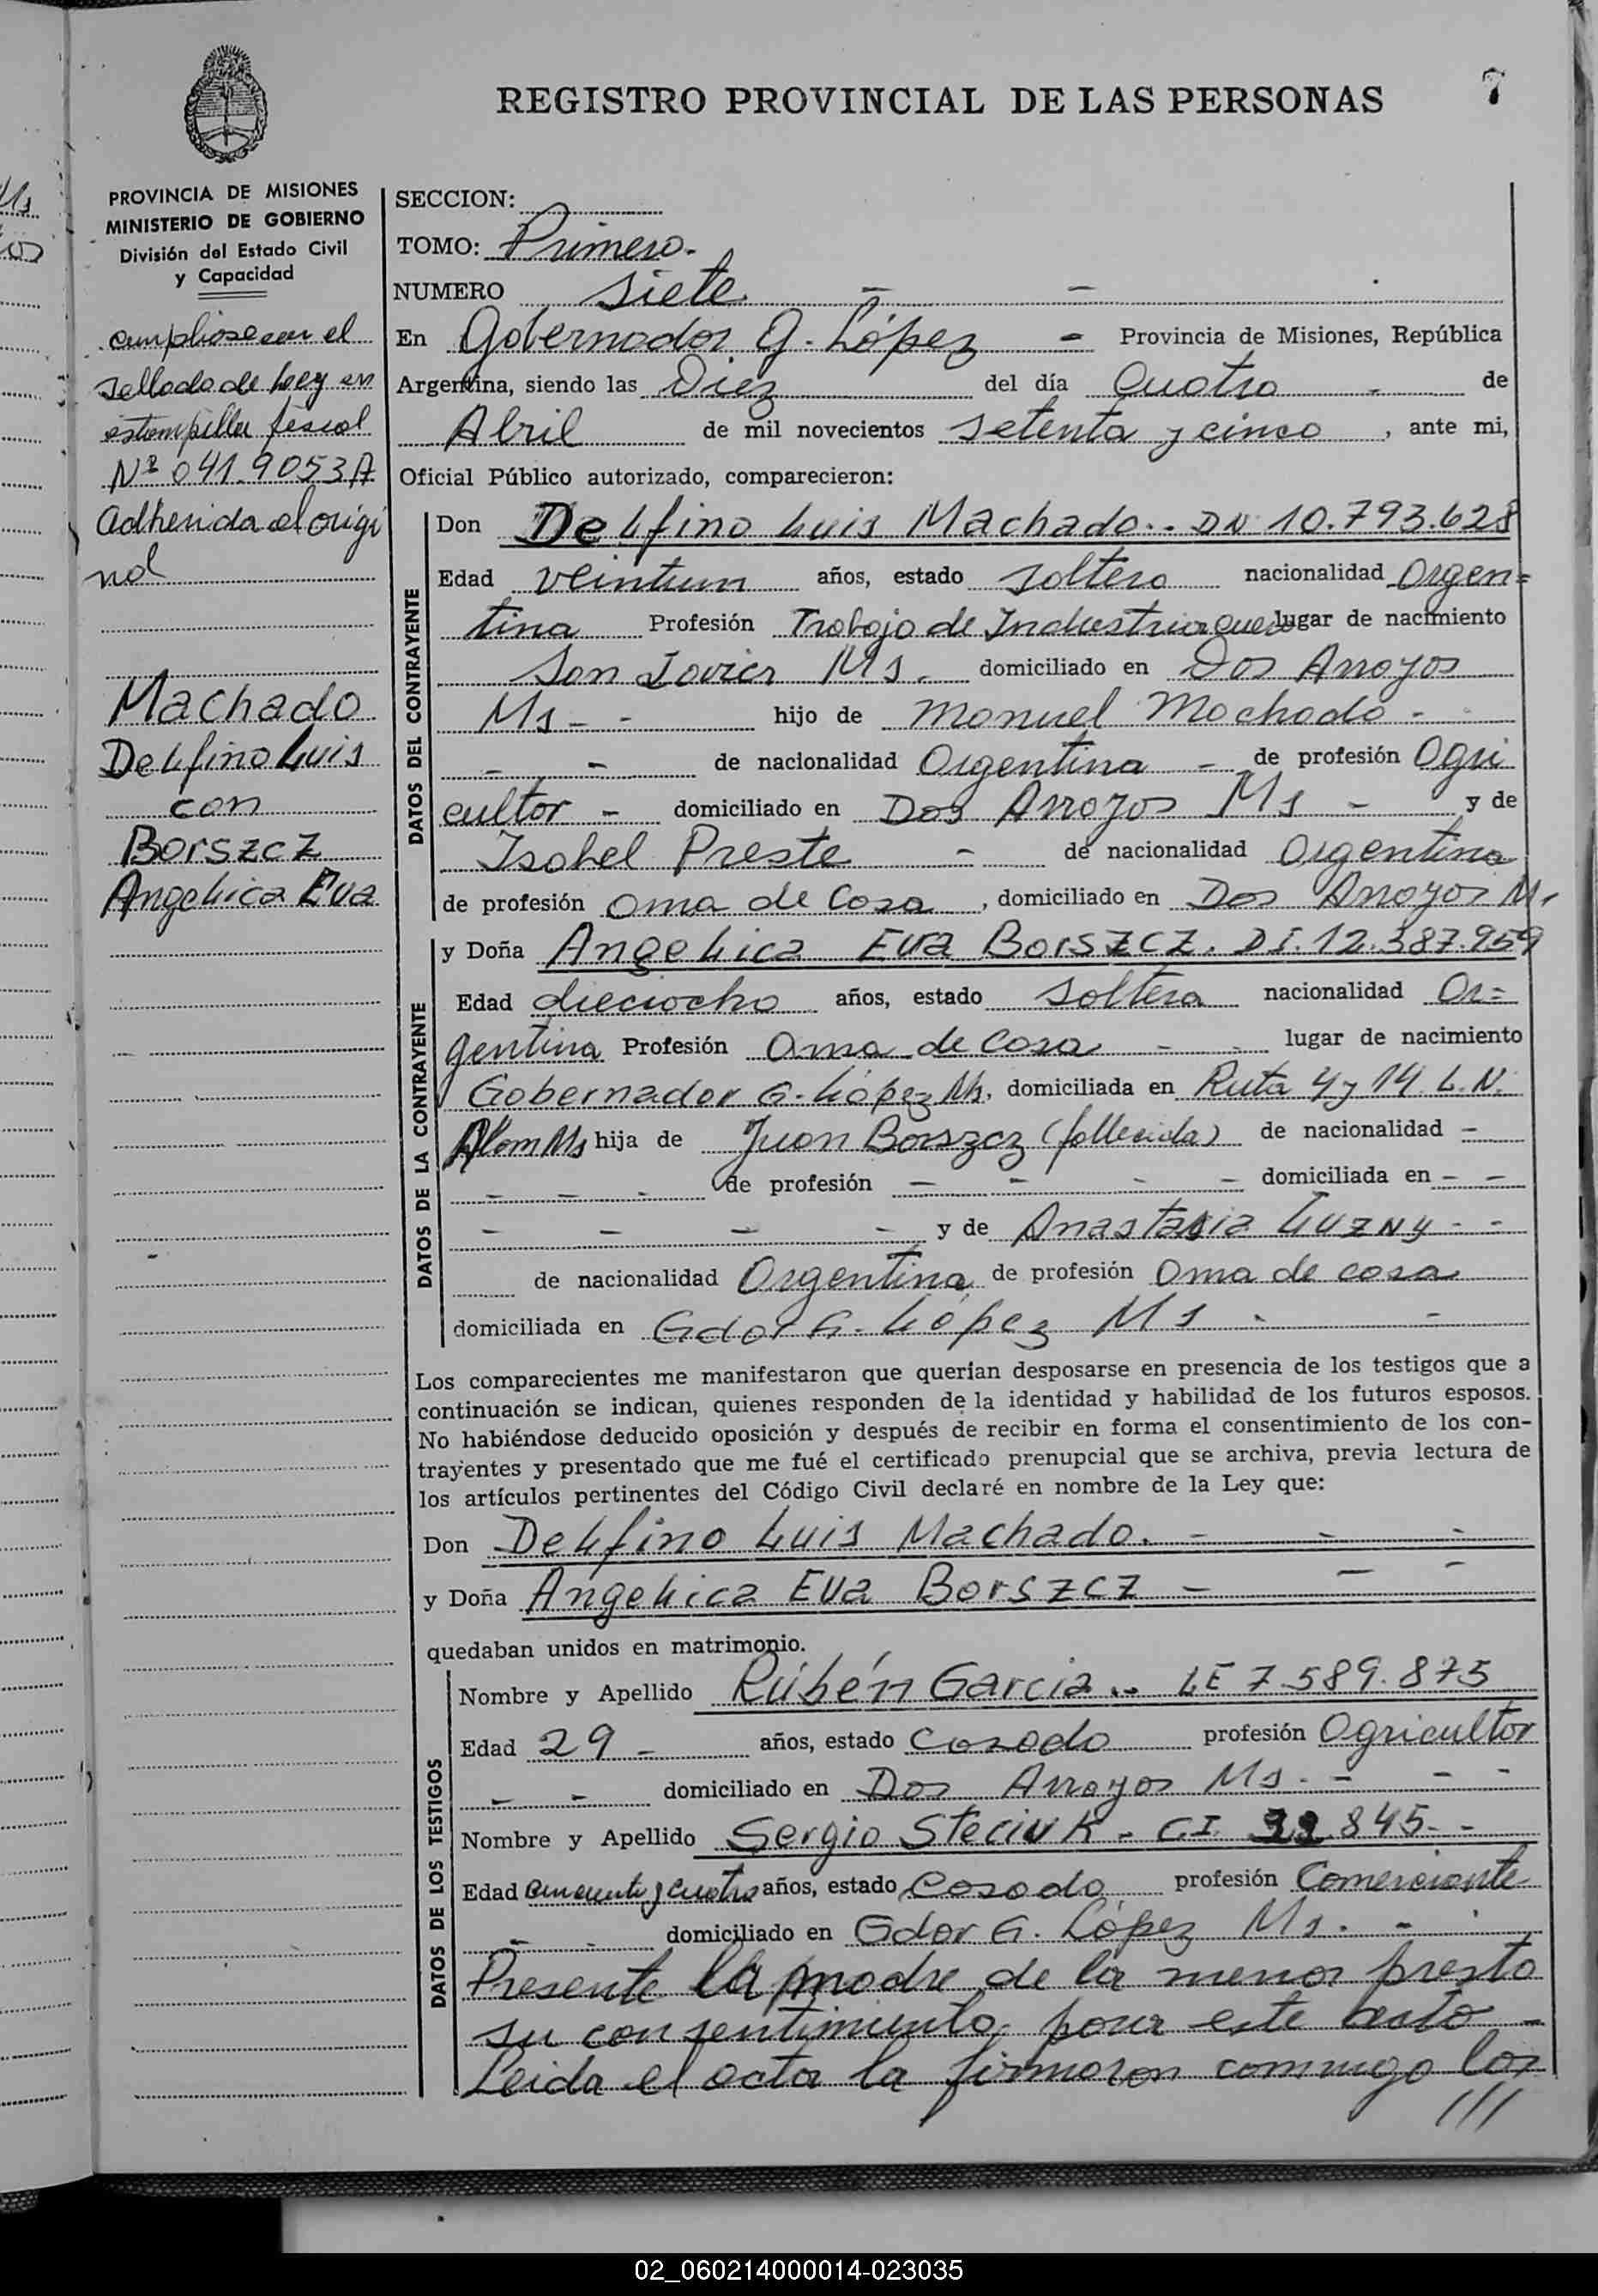 REGISTRO PROVINCIAL DE LAS PERSONAS 7
PROVINCIA DE MISIONES
MINISTERIO DE GOBIERNO
División del Estado Civil
y Capacidad
cumpliose con el
sellado de Ley en
estampilla fiscal
Nº 041.9053A
Adherida al origi
nal
Machado
Delfino Luis
con
Borszcz
Angelica Eva
SECCION:
TOMO: Primero.-
NUMERO siete. - -
En Gobernador G. López - Provincia de Misiones, República
Argentina, siendo las Diez del día Cuatro - de
Abril de mil novecientos setenta y cinco, ante mi,
Oficial Público autorizado, comparecieron:
DATOS DEL CONTRAYENTE
Don Delfino Luis Machado.- DN 10.793.628
Edad veintiun años, estado soltero nacionalidad Argen=
tina Profesión Trabajo de Industria lugar de nacimiento
San Javier Ms. domiciliado en Dos Arroyos
Ms - - hijo de Manuel Machado -
- - de nacionalidad Argentina - de profesión Agri
cultor - domiciliado en Dos Arroyos Ms - y de
Isabel Preste - de nacionalidad Argentina
de profesión ama de casa, domiciliado en Dos Arroyos M.
DATOS DE LA CONTRAYENTE
y Doña Angelica Eva Borszcz. D I. 12.387.959
Edad dieciocho años, estado soltera nacionalidad Ar=
gentina Profesión Ama de Casa - - lugar de nacimiento
Gobernador G. López Ms, domiciliada en Ruta 4 y 14 L.N.
Alem Ms hija de Juan Borszcz (fallecido) de nacionalidad -
- - - de profesión - - - - domiciliada en - -
- - - - y de Anastasia Luzny - -
de nacionalidad Argentina de profesión Ama de casa
domiciliada en Gdor G. López Ms - -
Los comparecientes me manifestaron que querían desposarse en presencia de los testigos que a
continuación se indican, quienes responden de la identidad y habilidad de los futuros esposos.
No habiéndose deducido oposición y después de recibir en forma el consentimiento de los con-
trayentes y presentado que me fué el certificado prenupcial que se archiva, previa lectura de
los artículos pertinentes del Código Civil declaré en nombre de la Ley que:
Don Delfino Luis Machado. - - -
y Doña Angelica Eva Borszcz - - -
quedaban unidos en matrimonio.
DATOS DE LOS TESTIGOS
Nombre y Apellido Rubén Garcia.- LE 7.589.875
Edad 29 - años, estado Casado profesión Agricultor
- - domiciliado en Dos Arroyos Ms. - - -
Nombre y Apellido Sergio Steciuk - C I 845 - -
Edad cincuenta y cuatro años, estado Casado profesión Comerciante
- - domiciliado en Gdor G. López Ms. - -
Presente la madre de la menor presto
su consentimiento, para este acto -
Leida el acta la firmaron conmigo los
///
02_060214000014-023035